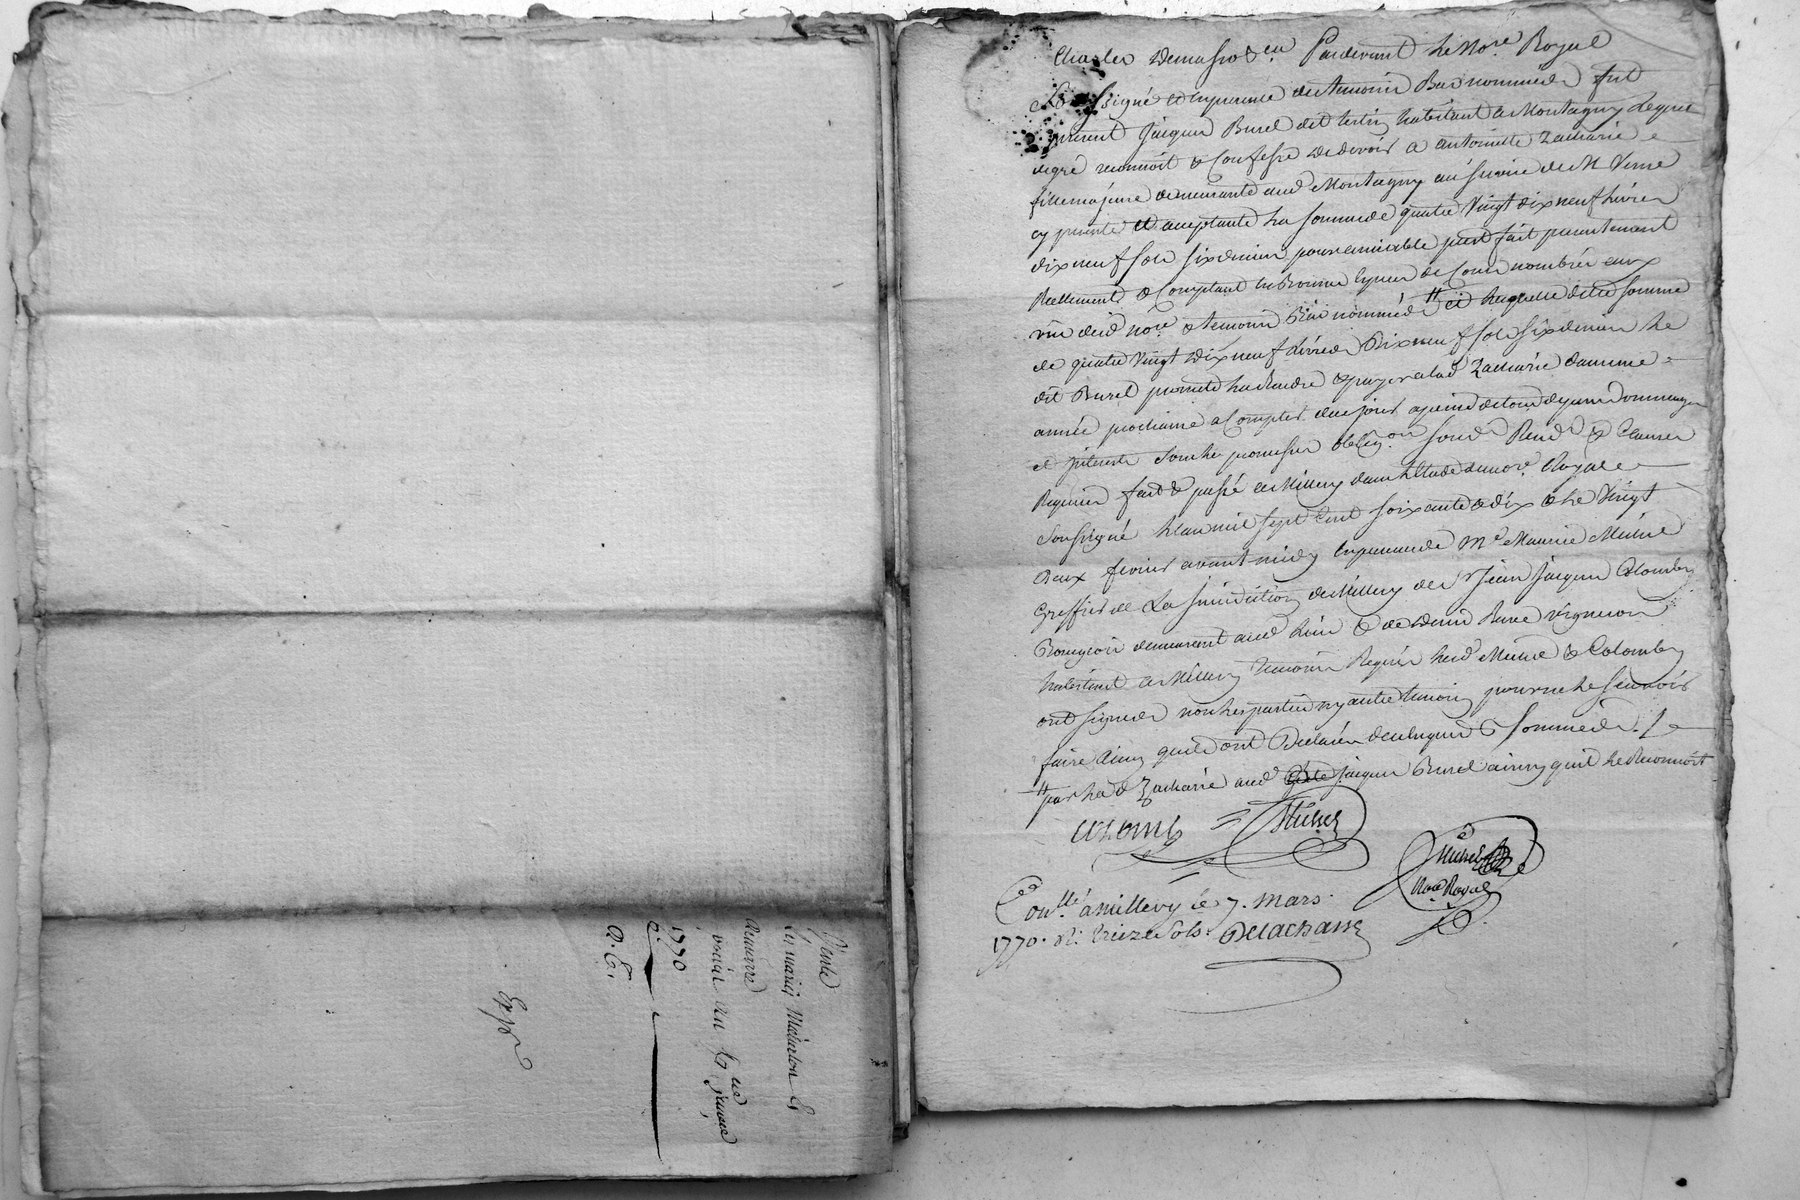 Pardevant Le Nore. Royal
Soussigné et en presence des temoins Bas nommés fut
present Jacques Burel dit habitant a Montagny Lequel
degré reconnoit & Confesse de devoir a antoinette Zacharie
fille majeure demeurante aud Montagny au service de M
cy presente et acceptante La somme de quatre Vingt dix neuf Livres
dix neuf sols six deniers pour amiable prest fait presentement
Reellement & Comptant en Bonnes Especes de Cours nombrés aux
vüe dud nore. & temoins Bas nommés # Laquelle dite somme
de quatre Vingt dix neuf Livres Dix neuf sols six deniers Le
dit Burel promet La Rendre & payer a lad Zacharie dans une
année prochaine a Compter de ce jour a peine de tous depens dommages
et interests sous les promesses oblig.on soum Renon & Clauses
Requises fait & passé a Millery dans L'Etude du nore. Royal
soussigné L'an mil sept Cent soixante & dix & Le Vingt
Deux fevrier avant midy En presence de Me Maurice
Greffier de La jurisdiction de Millery de sr Jean Jacques Colomby
Bourgeois demeurant aud Lieu & de Denis vigneron
habitant a Millery temoins Requis Lesd & Colomby
ont signés non Les parties ny autre temoin pour ne Le sçavoir
faire ainsy quils ont Declarés de ce Enquis & sommés
# par Lad Zacharie aud Jacques Burel ainsy quil Le Reconnoit
Colomby
Noe. Royal
Conllé. a Millery le 7. Mars
1770. R. treize Sols. Delachasse
Vente
1770
Exp